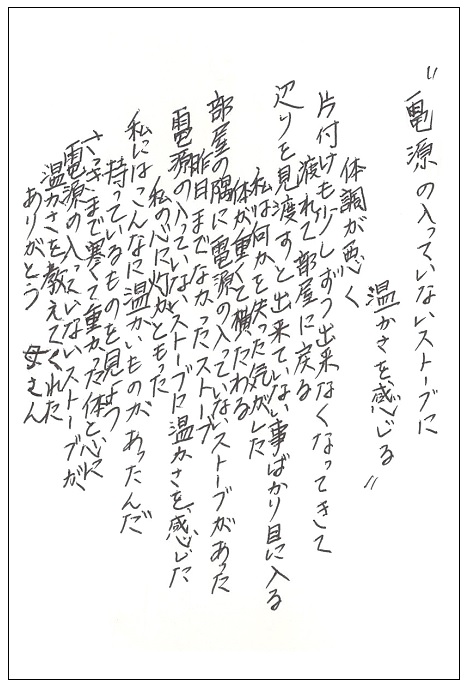 〝電源の入っていないストーブに
温かさを感じる〟
体調が悪く
片付けも少しずつ出来なくなってきて
渡れて部屋に戻る
辺りを見渡すと出来ていない事ばかり目に入る
私は何かを失った気がした
体が重くて横たわる
部屋の隅に電源の入っていないストーブがあった
昨日までなかったストーブ
電源の入っていないストーブに温かさを感じた
私の心に灯がともった
私にはこんなに温かいものがあったんだ
持っているものを見よう
さっきまで寒くて重かった体と心に
電源の入っていないストーブが、
温かさを教えてくれた
ありがとう 母さん